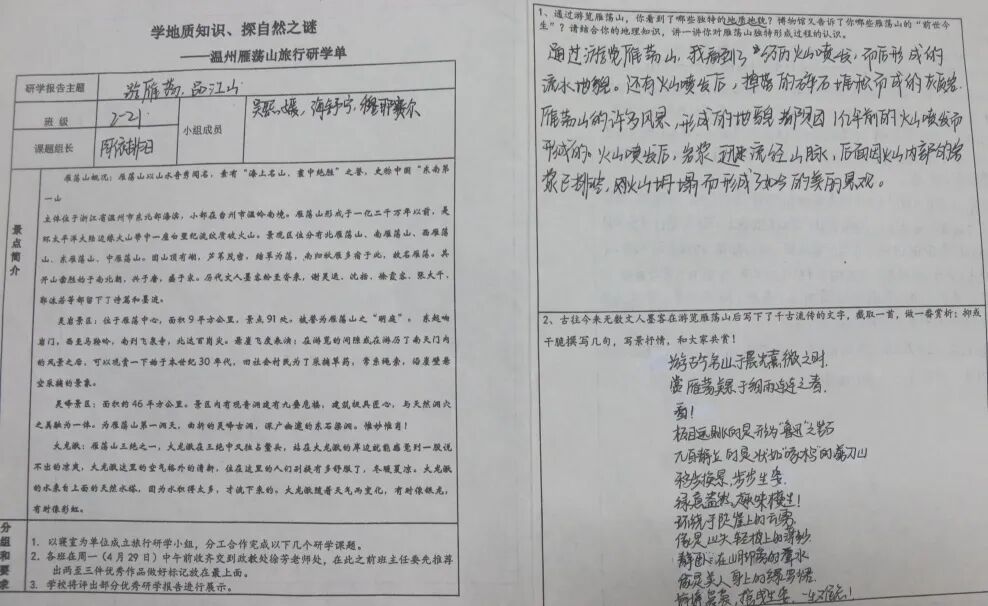 学地质知识、探自然之谜
——温州雁荡山旅行研学单
研学报告主题
游雁荡,品江山
班 级
2-21
小组成员
课题组长
景点简介
雁荡山概况：雁荡山以山水奇秀闻名，素有“海上名山、寰中绝胜”之誉，史称中国“东南第
一山
主体位于浙江省温州市东北部海滨，小部在台州市温岭南境。雁荡山形成于一亿二千万年以前，是
环太平洋大陆边缘火山带中一座白垩纪流纹质破火山。景观区位分有北雁荡山、南雁荡山、西雁荡
山、东雁荡山、中雁荡山。因山顶有湖，芦苇茂密，结草为荡，南归秋雁多宿于此，故名雁荡。其
开山凿胜始于南北朝，兴于唐，盛于宋。历代文人墨客纷至沓来，谢灵运、沈括、徐霞客、张大千、
郭沫若等都留下了诗篇和墨迹。
灵岩景区：位于雁荡中心，面积9平方公里，景点91处。被誉为雁荡山之“明庭”。东起响
岩门，西至马鞍岭，南到飞泉寺，北达百岗尖。悬崖飞度表演：在游览的间隙或在游历了南天门内
的风景之后，可以观赏一下始于本世纪30年代，旧社会村民为了采摘草药，常系绳索，沿崖壁悬
空采摘的景象。
灵峰景区：面积约46平方公里。景区内有观音洞建有九叠危楼，建筑极具匠心，与天然洞穴
之美融为一体。为雁荡山第一洞天，曲折的灵峰古洞，深广幽邃的东石梁洞。惟妙惟肖！
大龙湫：雁荡山三绝之一，大龙湫在三绝中又独占鳌头，站在大龙湫的岸边就能感觉到一股说
不出的凉爽，大龙湫这里的空气格外的清新，住在这里的人们别提有多舒服了，冬暖夏凉。大龙湫
的水来自上面的天然水塔，因为水积得太多，才流下来的。大龙湫随着天气而变化，有时像银龙，
有时像彩虹。
分组和要求
1. 以寝室为单位成立旅行研学小组，分工合作完成以下几个研学课题。
2. 各班在周一（4月29日）中午前收齐交到政教处徐芳老师处，在此之前班主任要先推荐
出两至三件优秀作品做好标记放在最上面。
3. 学校将评出部分优秀研学报告进行展示。
1、通过游览雁荡山，你看到了哪些独特的地质地貌？博物馆又告诉了你哪些雁荡山的“前世今
生”？请结合你的地理知识，讲一讲你对雁荡山独特形成过程的认识。
通过游览雁荡山,我看到了经历火山喷发,而形成的
流水地貌。还有火山喷发后,掉落的碎石堆积而成的灰岩
雁荡山的许多风景,形成的地貌都是因1亿年前的火山喷发而
形成的。火山喷发后,岩浆迅速流经山脉,后面因火山内部的岩
浆已排空,火山坍塌而形成了如今的美丽景观。
2、古往今来无数文人墨客在游览雁荡山后写下了千古流传的文字，截取一首，做一番赏析；抑或
干脆撰写几句，写景抒情，和大家共赏！
游古今名山于晨光熹微之时
赏雁荡美景于细雨连连之春
看!
移步换景,步步生姿
绿意盎然,趣味横生!
环绕于陡崖上的云雾
像是山头轻披上的薄纱
静卧在山脚旁的潭水